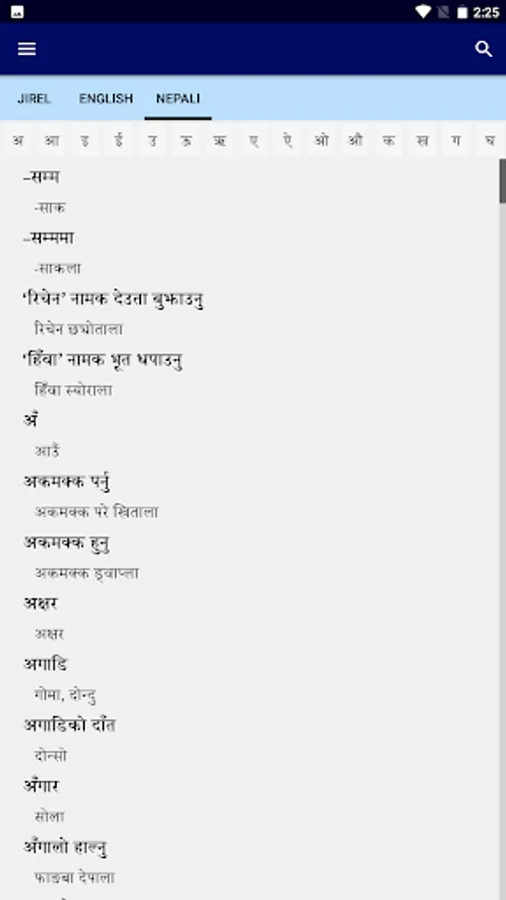 2:25
JIREL ENGLISH NEPALI
अ आ इ ई उ ऊ ऋ ए ऐ ओ औ क ख ग घ
–सम्म
-साक
–सम्ममा
-साकला
‘रिचेन’ नामक देउता बुझाउनु
रिचेन छ्योताला
‘हिँवा’ नामक भूत थपाउनु
हिँवा स्योराला
अँ
आउँ
अकमक्क पर्नु
अकमक्क परे खिताला
अकमक्क हुनु
अकमक्क ड्वाप्ला
अक्षर
अक्षर
अगाडि
गोमा, दोन्दु
अगाडिको दाँत
दोन्सो
अँगार
सोला
अँगालो हाल्नु
फाङबा देपाला